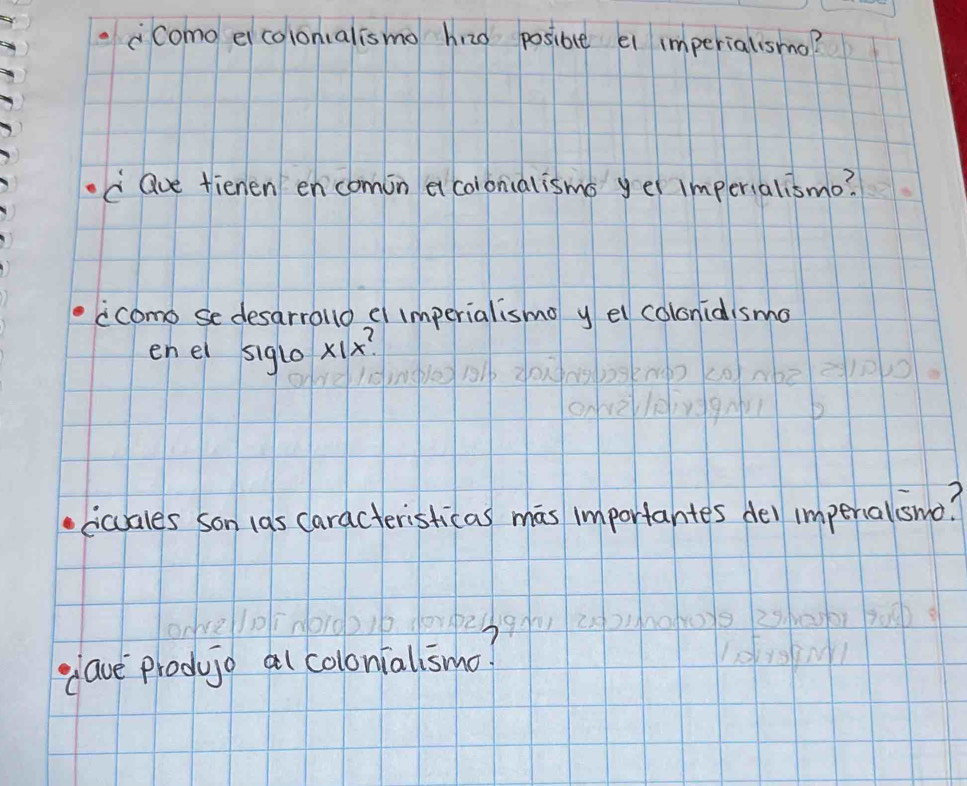 • ¿Como el colonialismo hizo posible el imperialismo?
• ¿Que tienen en común el colonialismo y el imperialismo?
• ¿como se desarrollo el imperialismo y el colonidismo
en el siglo XIX?
• ¿cuales son las caracteristicas más importantes del imperialismo?
• ¿que produjo al colonialismo?